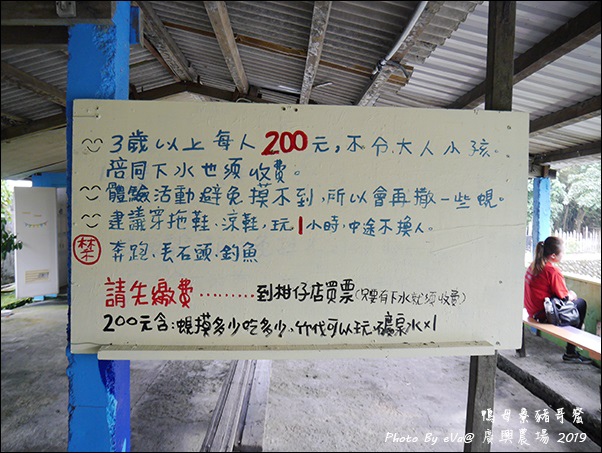 3歲以上每人200元，不分大人小孩。
陪同下水也須收費。
體驗活動避免摸不到，所以會再撒一些蜆。
建議穿拖鞋、涼鞋，玩1小時，中途不換人。
禁 奔跑、丟石頭、釣魚
請先繳費………到柑仔店買票(只要有下水就須收費)
200元含:蜆摸多少吃多少、竹筏可以玩、礦泉水×1
鴨母寮豬哥窩
Photo By eVa@ 廣興農場 2019